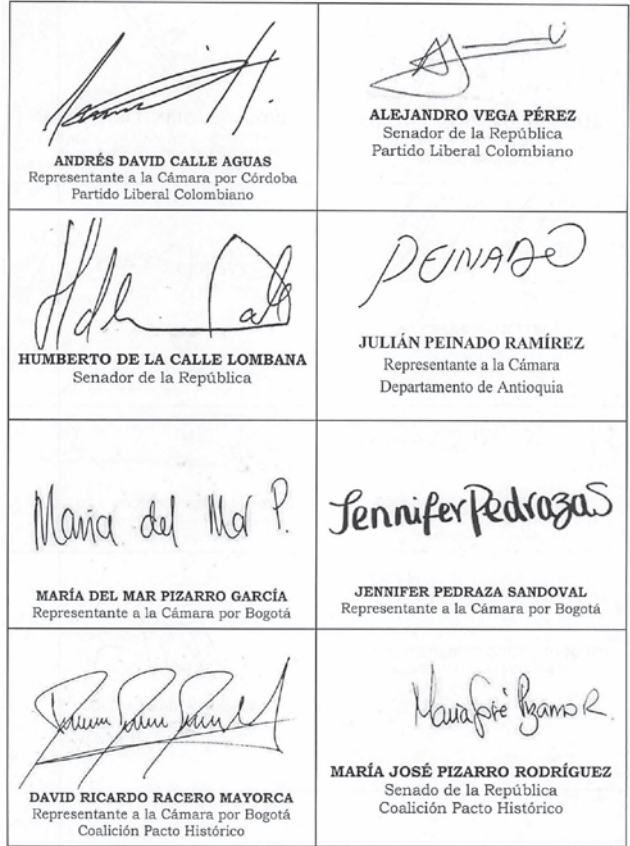 ANDRÉS DAVID CALLE AGUAS
Representante a la Cámara por Córdoba
Partido Liberal Colombiano
ALEJANDRO VEGA PÉREZ
Senador de la República
Partido Liberal Colombiano
HUMBERTO DE LA CALLE LOMBANA
Senador de la República
PEINADO
JULIÁN PEINADO RAMÍREZ
Representante a la Cámara
Departamento de Antioquia
Maria del Mar P.
MARÍA DEL MAR PIZARRO GARCÍA
Representante a la Cámara por Bogotá
Jennifer Pedraza S
JENNIFER PEDRAZA SANDOVAL
Representante a la Cámara por Bogotá
DAVID RICARDO RACERO MAYORCA
Representante a la Cámara por Bogotá
Coalición Pacto Histórico
María José Pizarro R
MARÍA JOSÉ PIZARRO RODRÍGUEZ
Senado de la República
Coalición Pacto Histórico